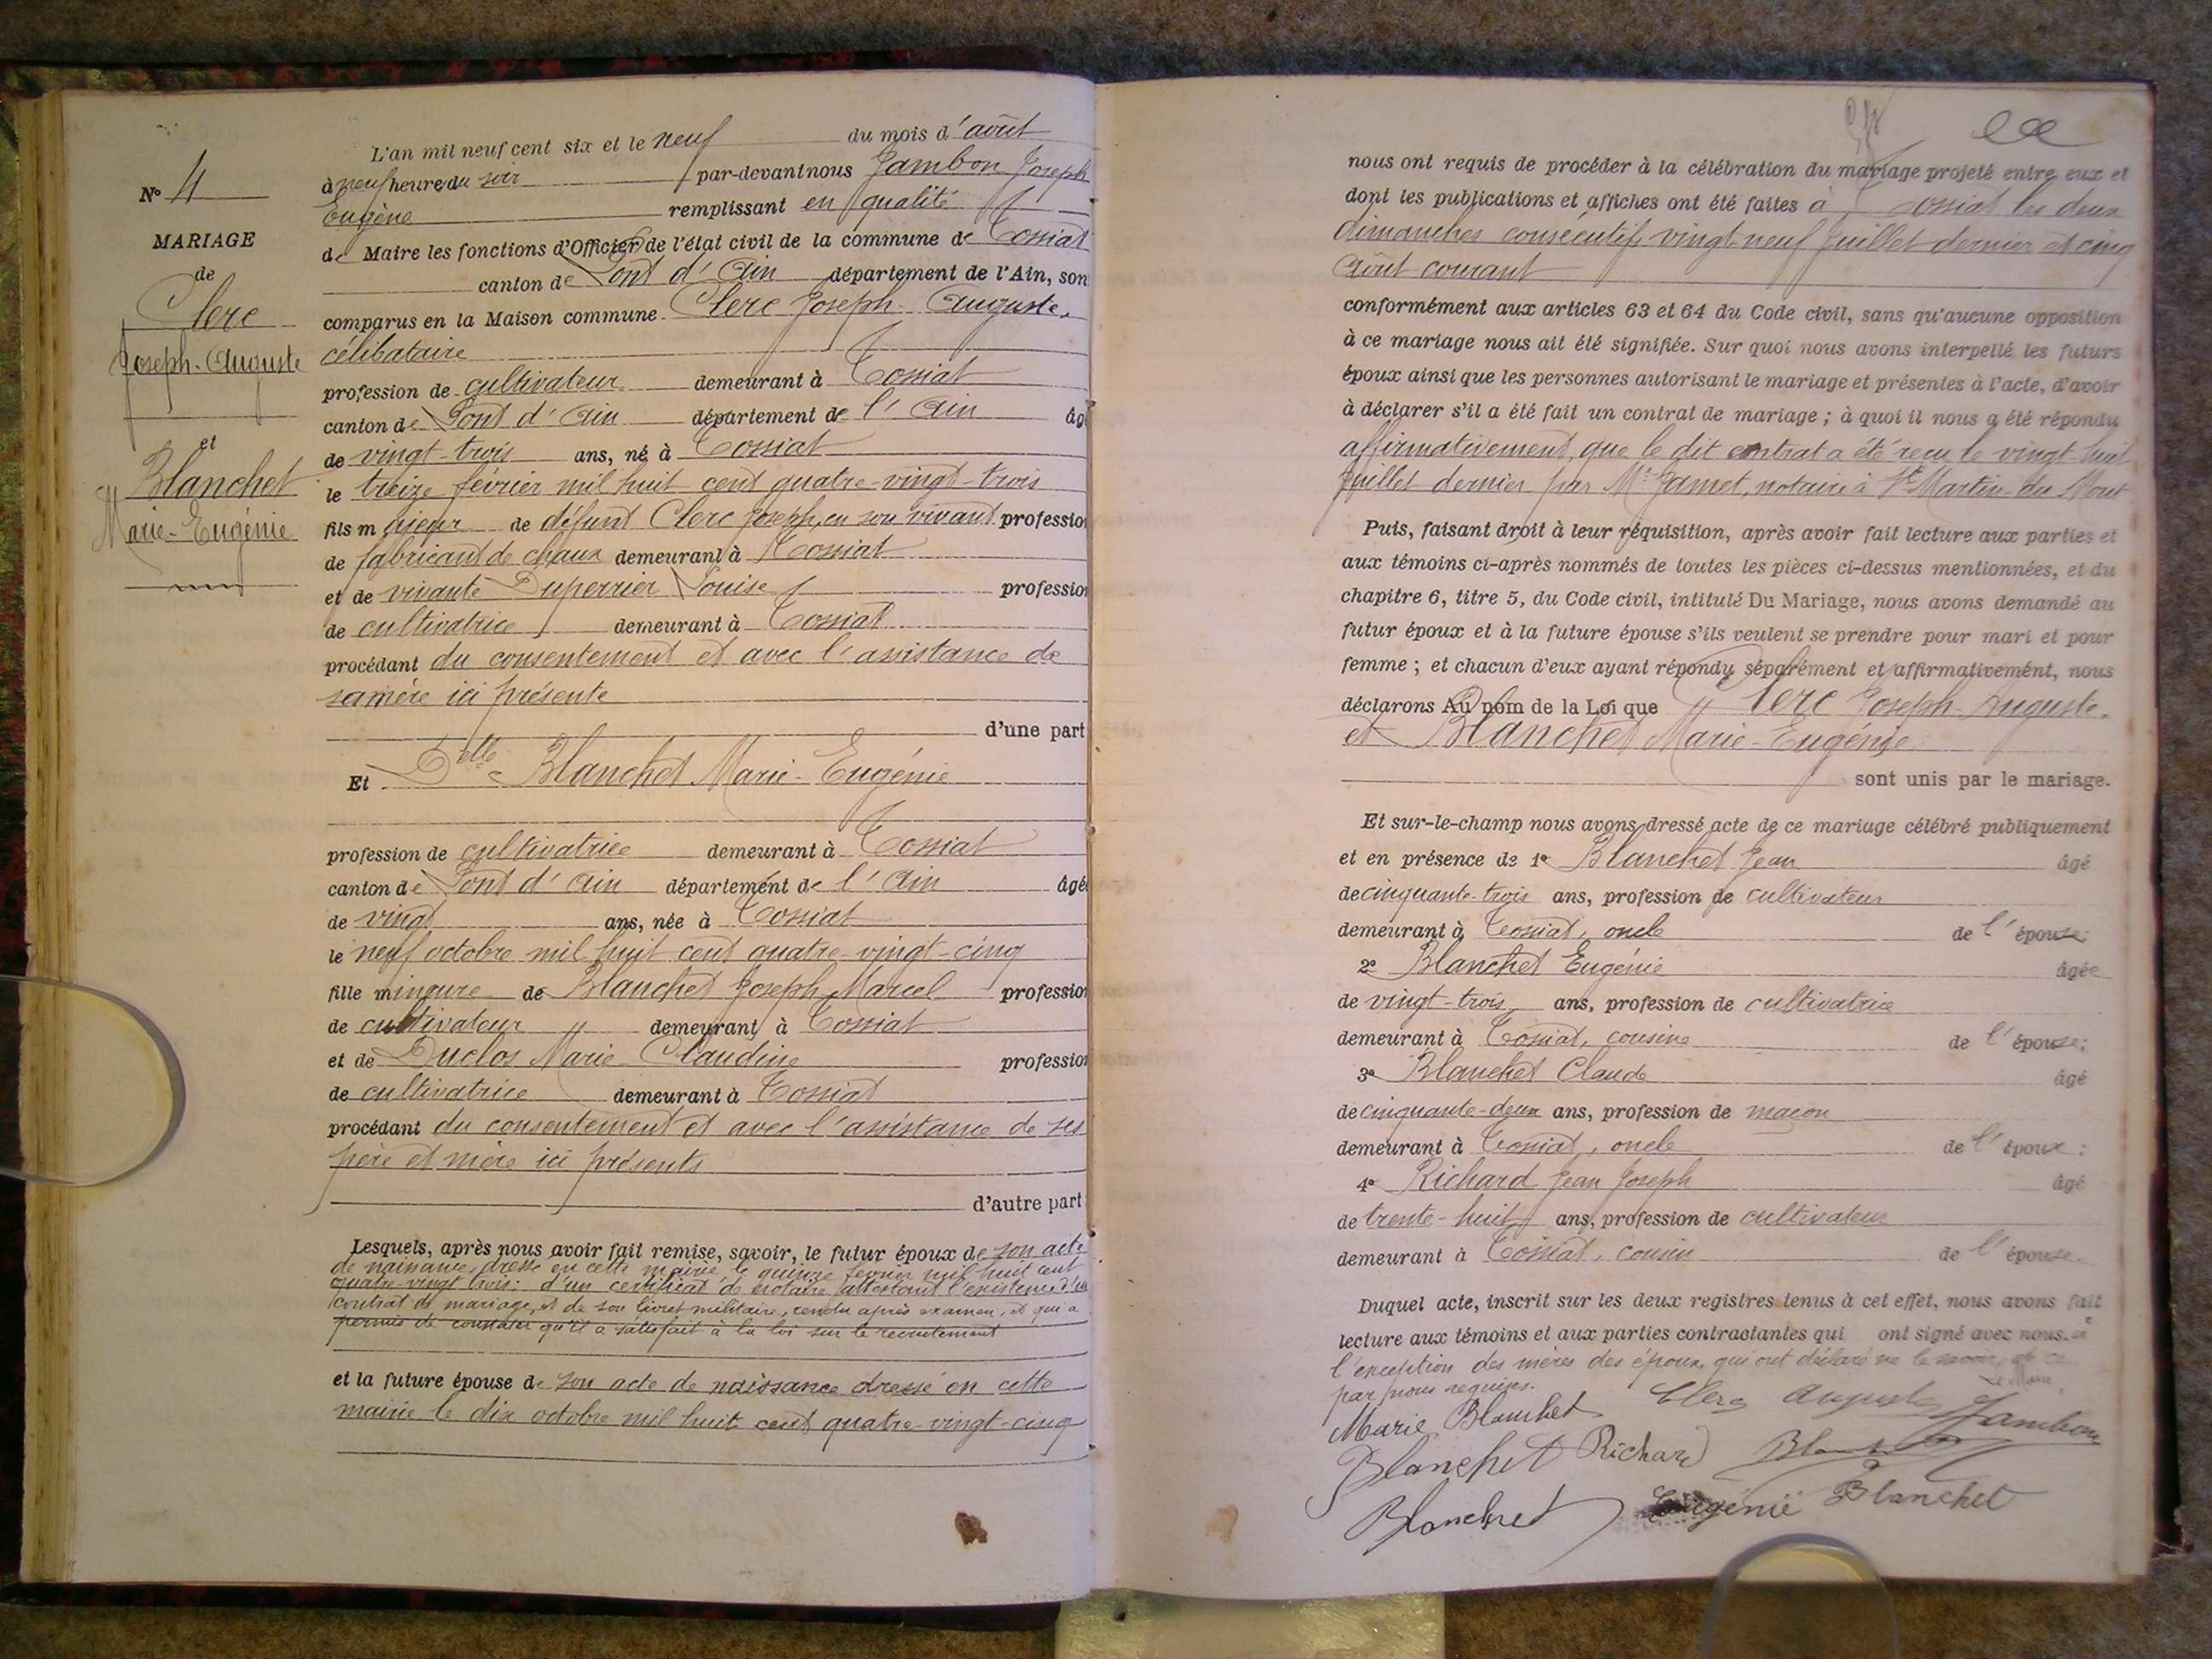 N° 4
MARIAGE
de
Clerc
Joseph-Auguste
et
Blanchet
Marie-Eugénie
L'an mil neuf cent six et le neuf du mois d'août
à neuf heure du soir par-devant nous Jambon Joseph
Eugène remplissant en qualité
de Maire les fonctions d'Officier de l'état civil de la commune de Tossiat
canton de Pont d'Ain département de l'Ain, son
comparus en la Maison commune Clerc Joseph-Auguste,
célibataire
profession de cultivateur demeurant à Tossiat
canton de Pont d'Ain département de l'Ain âg
de vingt-trois ans, né à Tossiat
le treize février mil huit cent quatre-vingt-trois
fils majeur de défunt Clerc Joseph, en son vivant profession
de fabricant de chaux demeurant à Tossiat
et de vivante Duperrier Louise profession
de cultivatrice demeurant à Tossiat
procédant du consentement et avec l'assistance de
sa mère ici présente
d'une part
Et Delle Blanchet Marie-Eugénie
profession de cultivatrice demeurant à Tossiat
canton de Pont d'Ain département de l'Ain âgé
de vingt ans, née à Tossiat
le neuf octobre mil huit cent quatre-vingt-cinq
fille mineure de Blanchet Joseph Marcel profession
de cultivateur demeurant à Tossiat
et de Duclos Marie Claudine profession
de cultivatrice demeurant à Tossiat
procédant du consentement et avec l'assistance de ses
père et mère ici présents
d'autre part
Lesquels, après nous avoir fait remise, savoir, le futur époux de son acte
de naissance, dressé en cette mairie le quinze février mil huit cent
quatre-vingt trois; d'un certificat de notaire attestant l'existence d'un
contrat de mariage, et de son livret militaire, rendu après examen, et qui a
permis de constater qu'il a satisfait à la loi sur le recrutement
et la future épouse de son acte de naissance dressé en cette
mairie le dix octobre mil huit cent quatre-vingt-cinq
nous ont requis de procéder à la célébration du mariage projeté entre eux et
dont les publications et affiches ont été faites à Tossiat les deux
dimanches consécutifs vingt-neuf juillet dernier et cinq
août courant
conformément aux articles 63 et 64 du Code civil, sans qu'aucune opposition
à ce mariage nous ait été signifiée. Sur quoi nous avons interpellé les futurs
époux ainsi que les personnes autorisant le mariage et présentes à l'acte, d'avoir
à déclarer s'il a été fait un contrat de mariage; à quoi il nous a été répondu
affirmativement, que le dit contrat a été reçu le vingt-huit
juillet dernier par Me Jamet, notaire à St Martin-du-Mont
Puis, faisant droit à leur réquisition, après avoir fait lecture aux parties et
aux témoins ci-après nommés de toutes les pièces ci-dessus mentionnées, et du
chapitre 6, titre 5, du Code civil, intitulé Du Mariage, nous avons demandé au
futur époux et à la future épouse s'ils veulent se prendre pour mari et pour
femme; et chacun d'eux ayant répondu séparément et affirmativement, nous
déclarons Au nom de la Loi que Clerc Joseph Auguste.
et Blanchet Marie-Eugénie
sont unis par le mariage.
Et sur-le-champ nous avons dressé acte de ce mariage célébré publiquement
et en présence de 1° Blanchet Jean âgé
de cinquante-trois ans, profession de cultivateur
demeurant à Tossiat, oncle de l'épouse;
2° Blanchet Eugénie âgée
de vingt-trois ans, profession de cultivatrice
demeurant à Tossiat, cousine de l'épouse;
3° Blanchet Claude âgé
de cinquante-deux ans, profession de maçon
demeurant à Tossiat, oncle de l'époux;
4° Richard Jean Joseph âgé
de trente-huit ans, profession de cultivateur
demeurant à Tossiat, cousin de l'épouse.
Duquel acte, inscrit sur les deux registres tenus à cet effet, nous avons fait
lecture aux témoins et aux parties contractantes qui ont signé avec nous. à
l'exception des mères des époux, qui ont déclaré ne le savoir, de ce
par nous requises. Le Maire,
Marie Blanchet Clerc Auguste Jambon
Blanchet Richard Blanchet
Blanchet Eugénie Blanchet